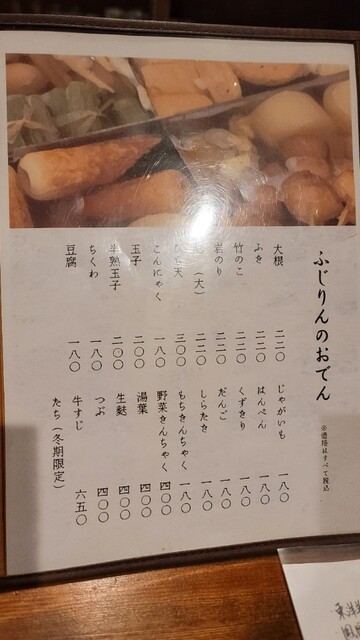 ふじりんのおでん
※価格はすべて税込
大根 二二〇
ふき 二二〇
竹のこ 二二〇
岩のり 二二〇
（大） 二二〇
天 三〇〇
こんにゃく 一八〇
玉子 二〇〇
半熟玉子 二〇〇
ちくわ 一八〇
豆腐 一八〇
じゃがいも 一八〇
はんぺん 一八〇
くずきり 一八〇
だんご 一八〇
しらたき 一八〇
もちきんちゃく 一八〇
野菜きんちゃく 四〇〇
湯葉 四〇〇
生麩 四〇〇
つぶ 四〇〇
牛すじ 六五〇
たち（冬期限定）